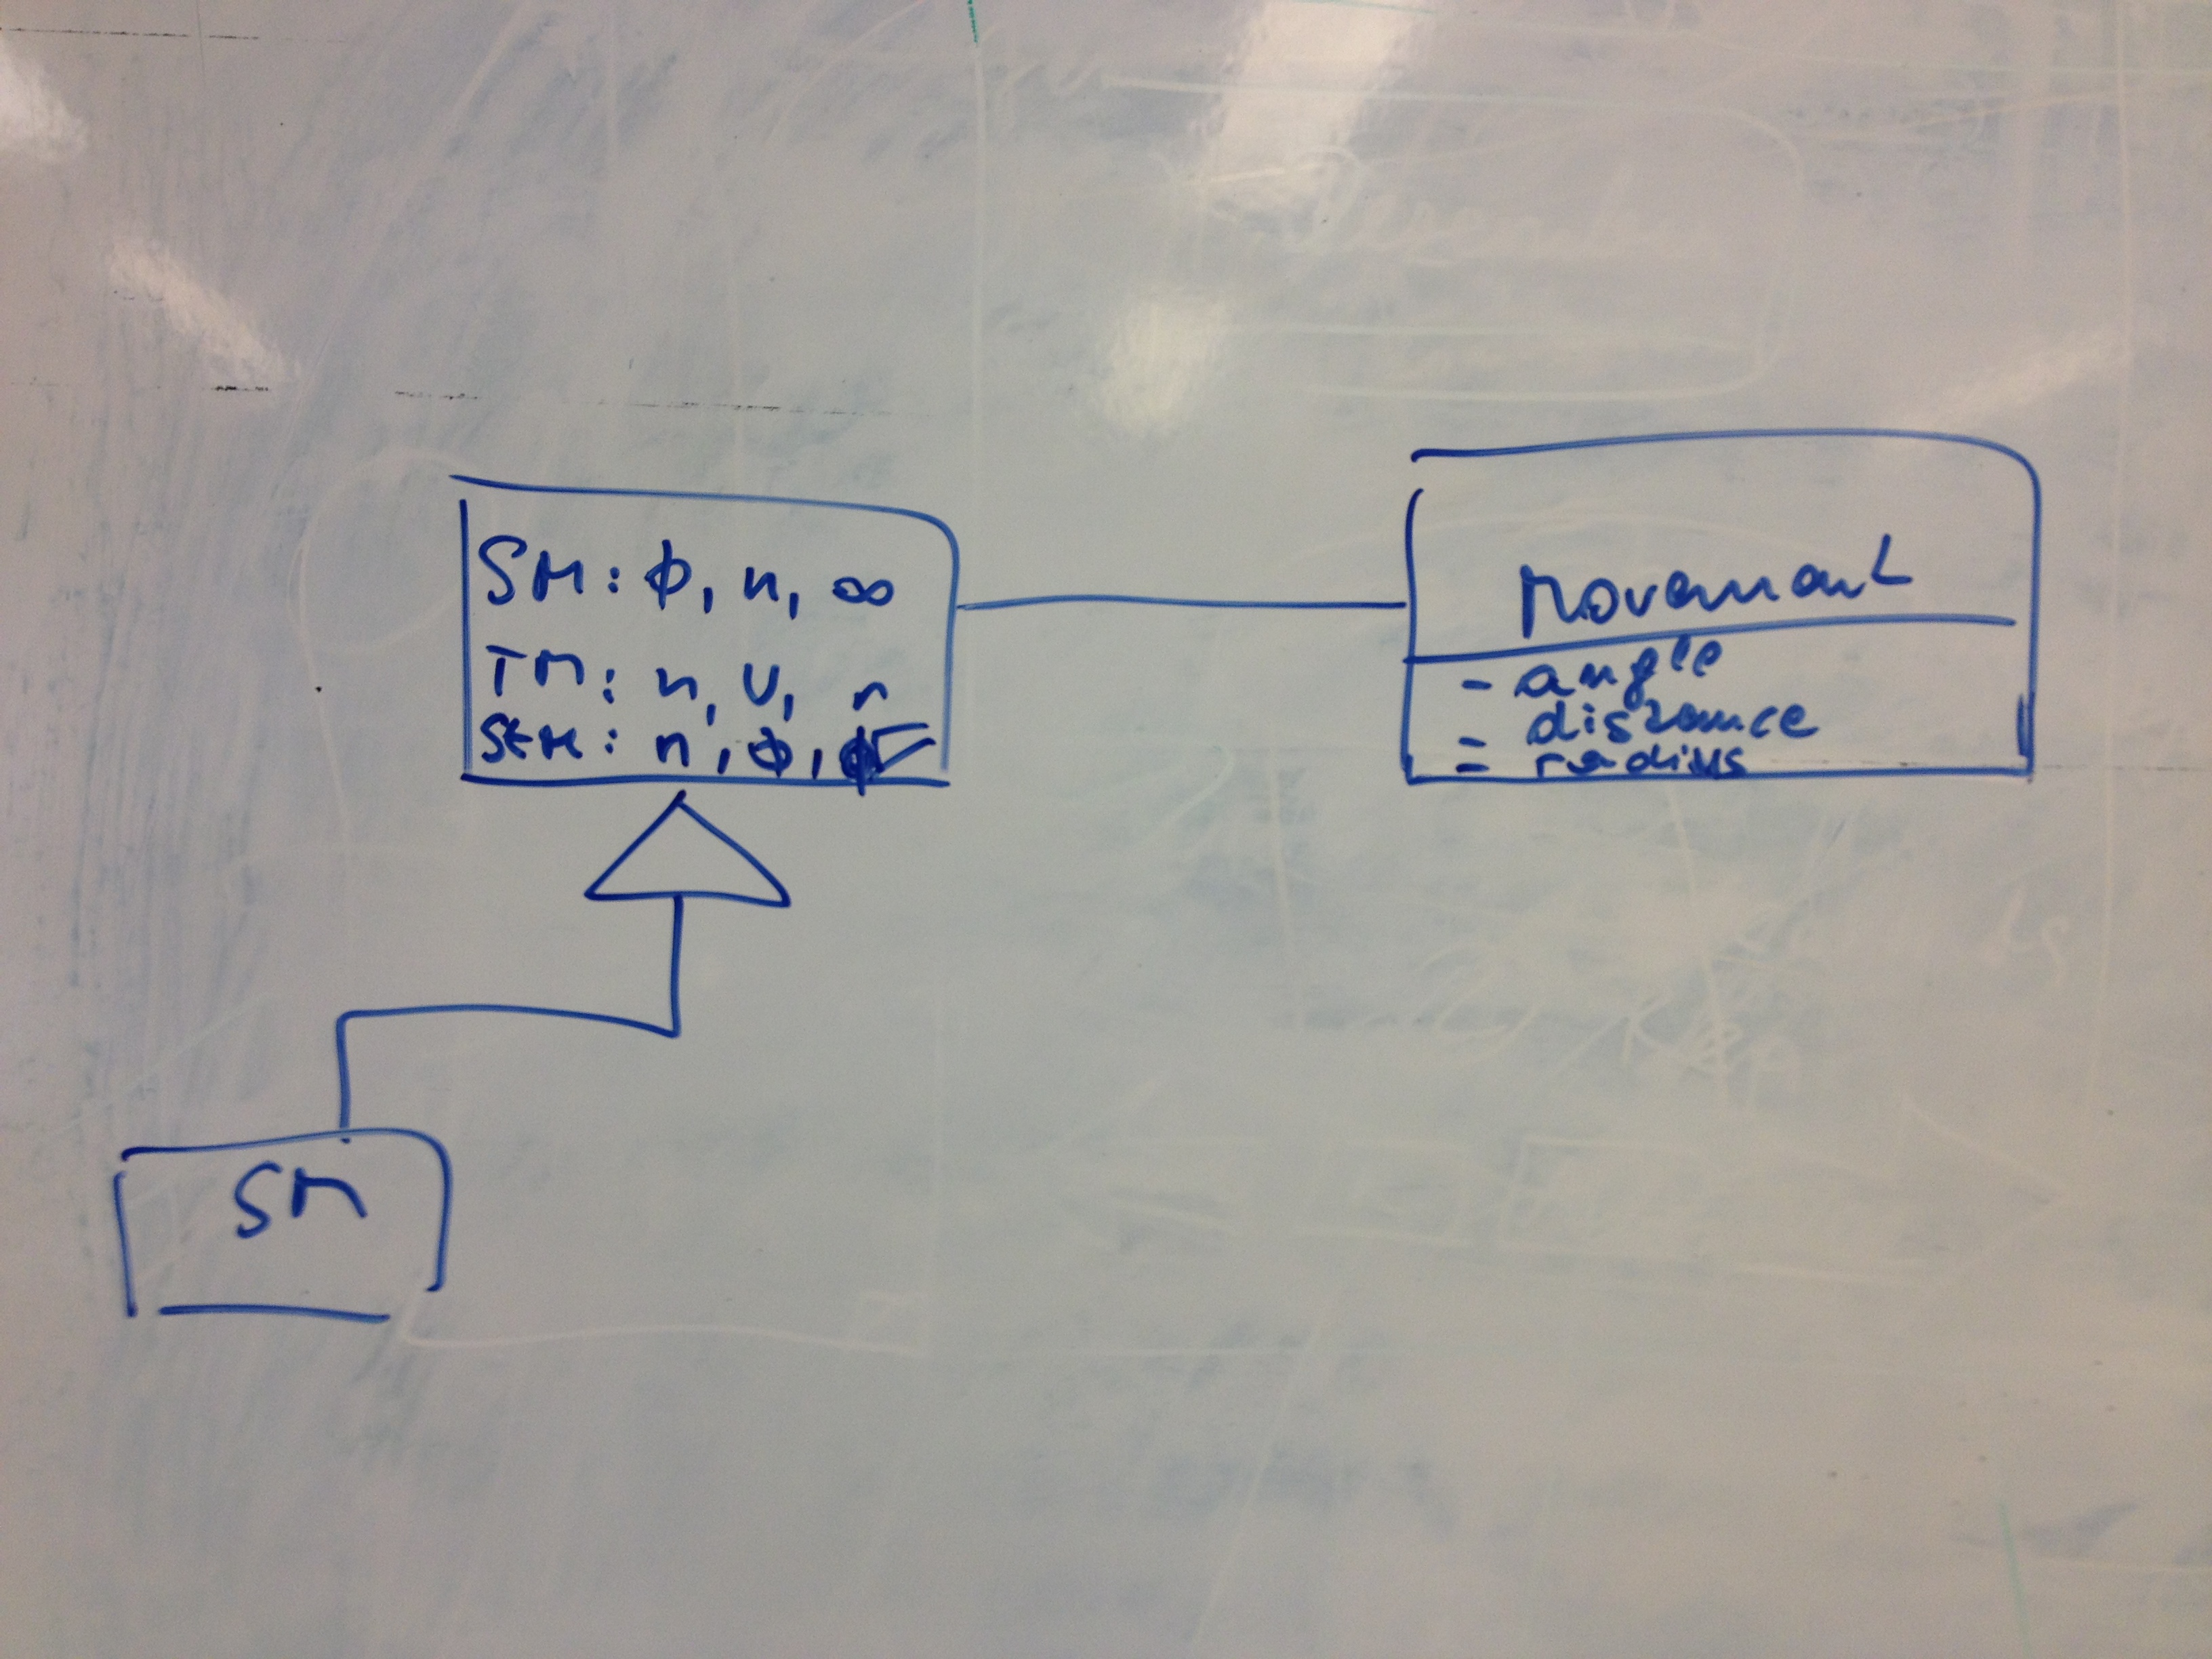 SM: ϕ, n, ∞
TM: n, v, r
StM: n, ϕ,
Movement
- angle
- distance
- radius
SM